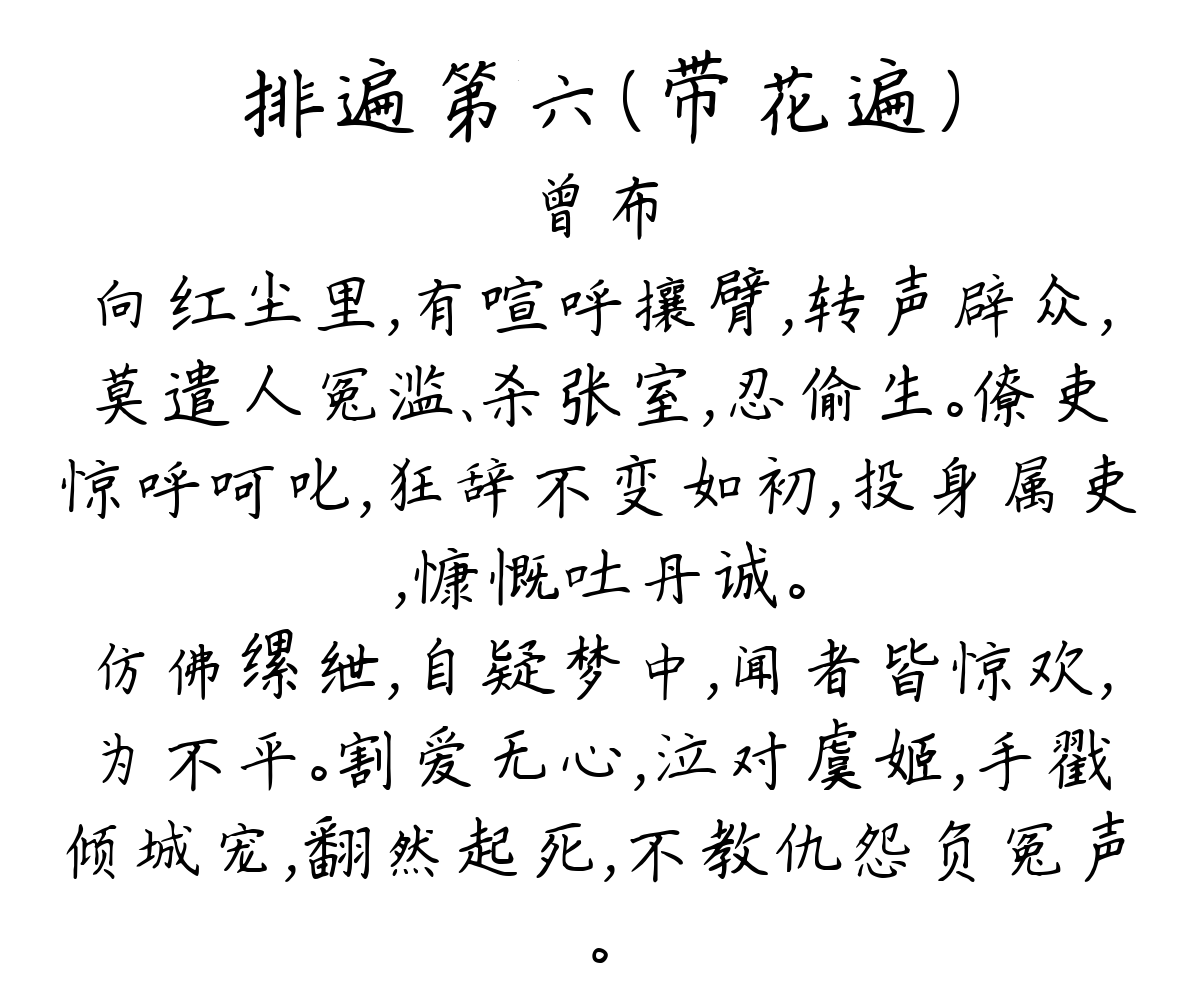 排遍第六(带花遍)
曾布
向红尘里,有喧呼攘臂,转声辟众,
莫遣人冤滥、杀张室,忍偷生。僚吏
惊呼呵叱,狂辞不变如初,投身属吏
,慷慨吐丹诚。
仿佛缧绁,自疑梦中,闻者皆惊欢,
为不平。割爱无心,泣对虞姬,手戳
倾城宠,翻然起死,不教仇怨负冤声
。